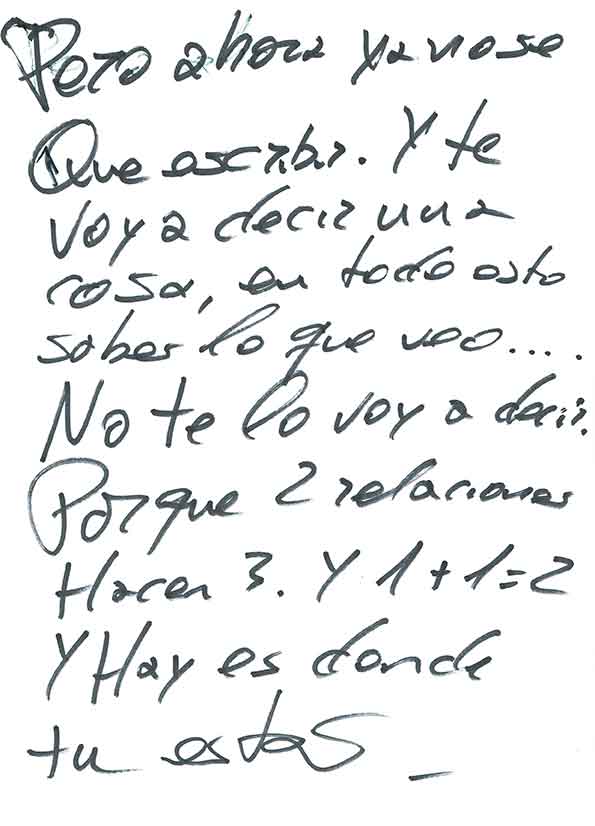 Pero ahora ya nose
Que escribir. Y te
voy a decir una
cosa, en todo esto
sabes lo que veo....
No te lo voy a decir.
Porque 2 relaciones
Hacen 3. Y 1+1=2
Y Hay es donde
tu estas _